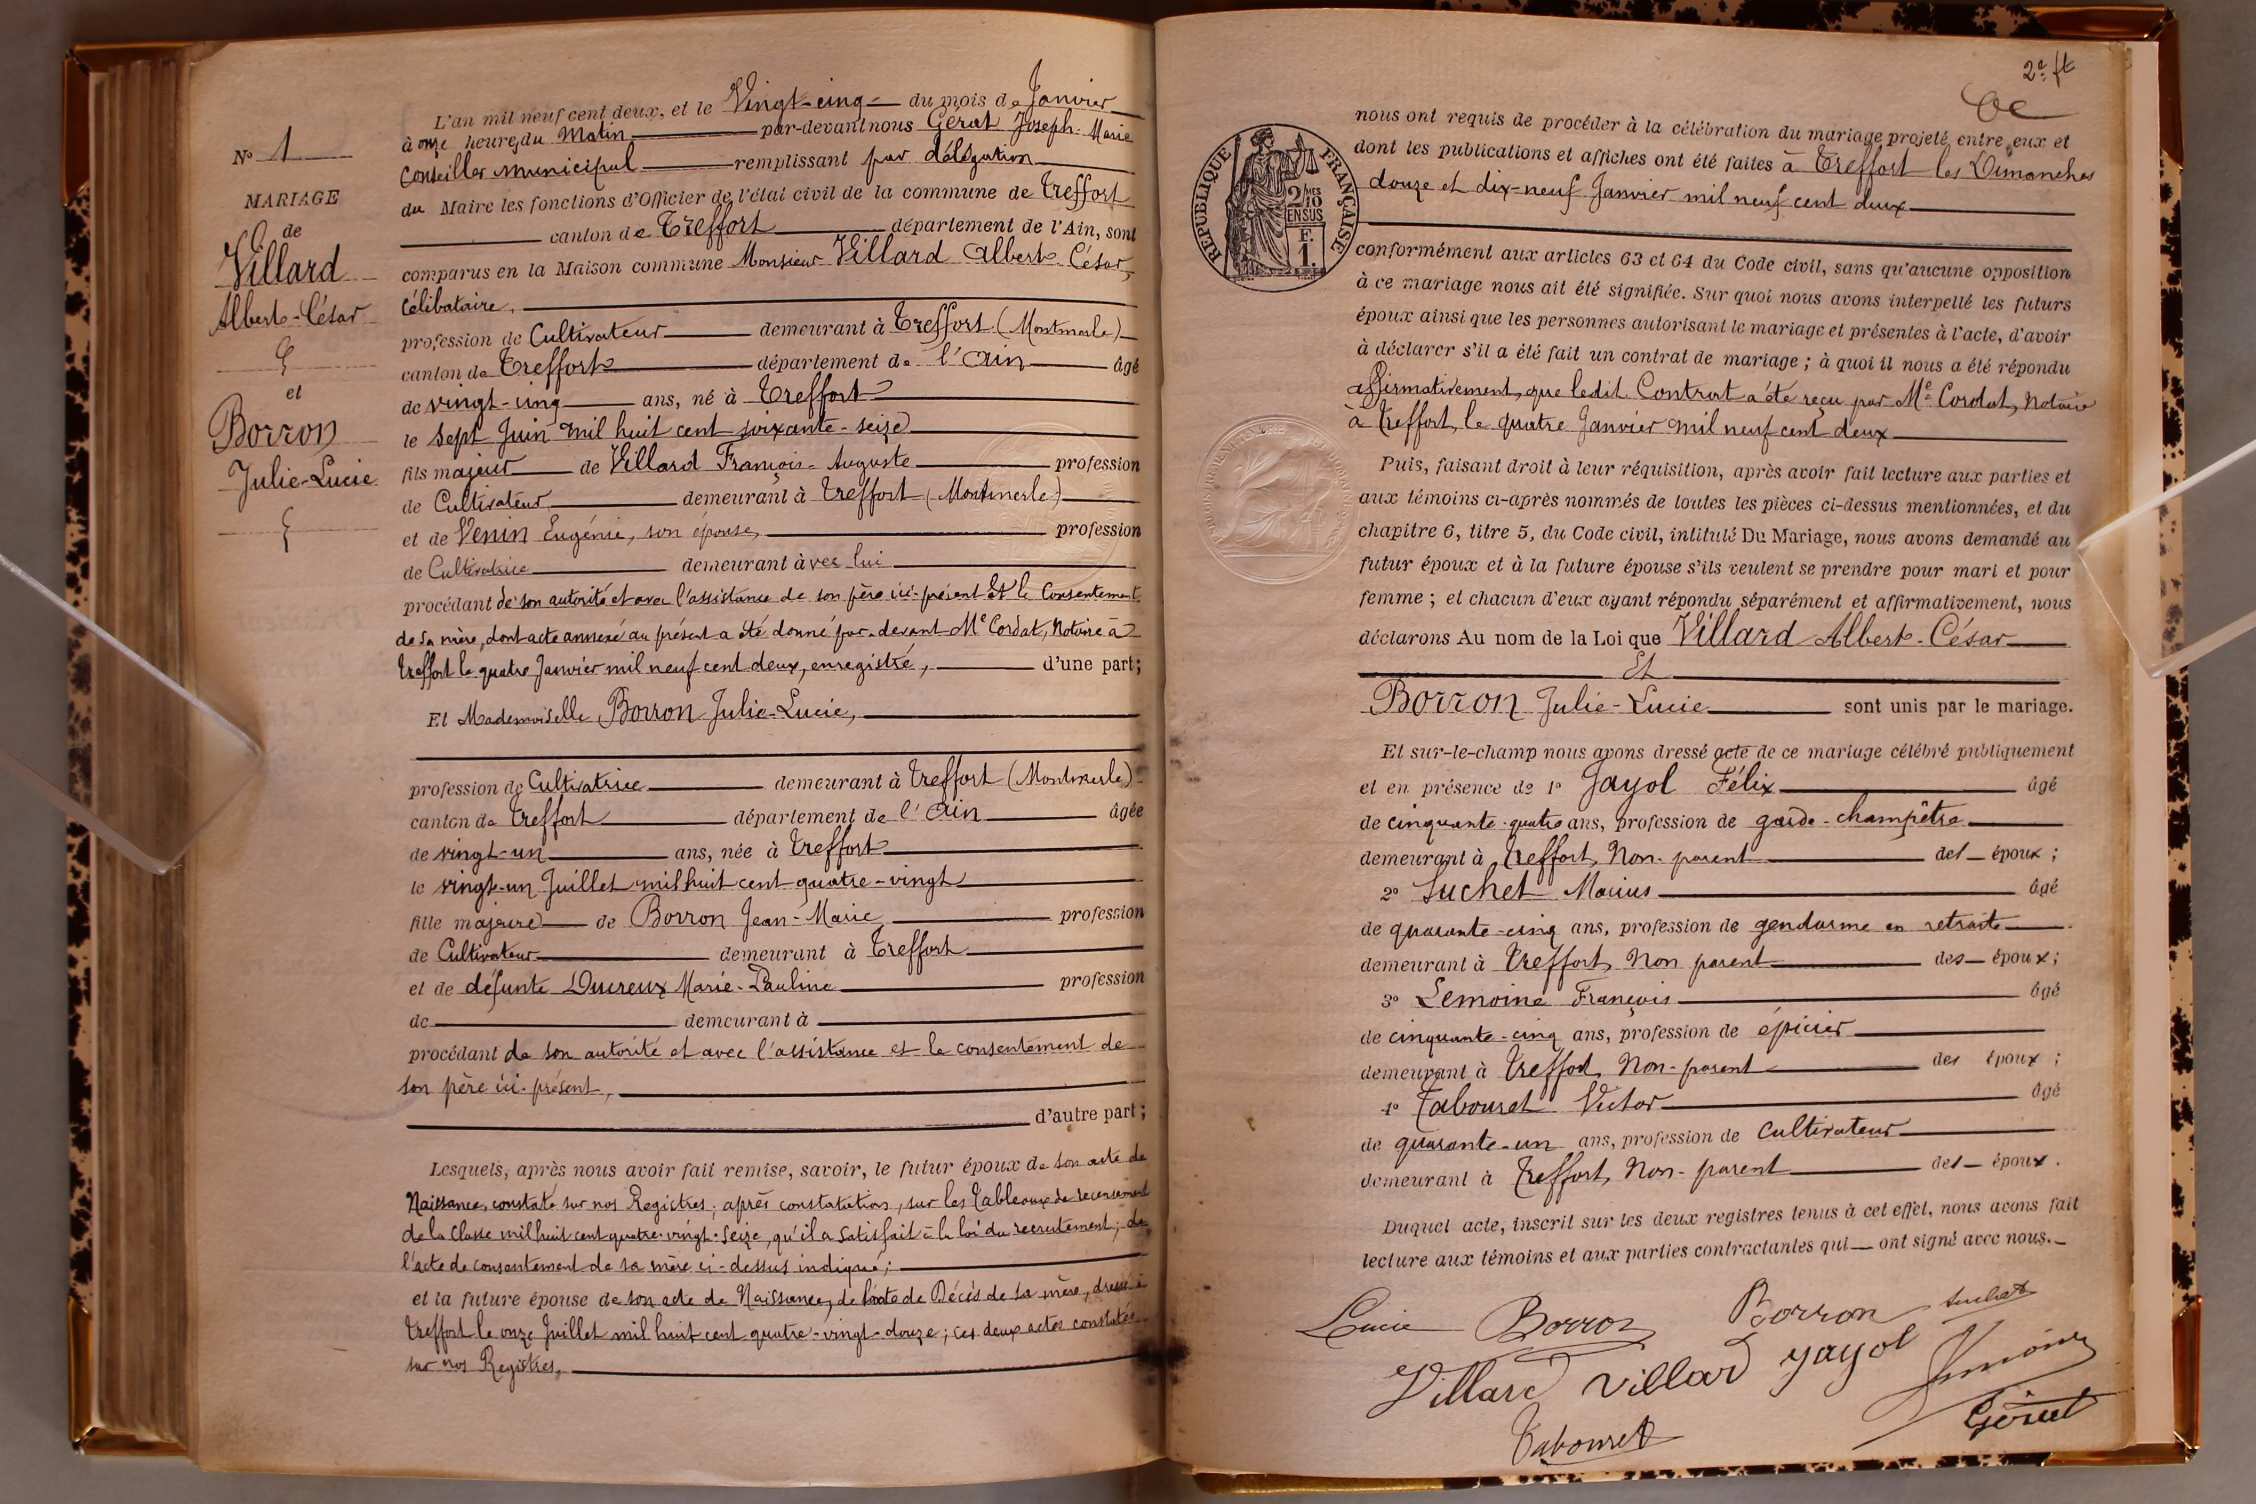 N° 1
MARIAGE
de
Villard
Albert-César
et
Borron
Julie-Lucie
L'an mil neuf cent deux, et le Vingt-cinq du mois de Janvier
à onze heures du Matin par-devant nous Gérat Joseph-Marie
Conseiller municipal remplissant par délégation
du Maire les fonctions d'Officier de l'état civil de la commune de Treffort
canton de Treffort département de l'Ain, sont
comparus en la Maison commune Monsieur Villard Albert-César,
célibataire,
profession de Cultivateur demeurant à Treffort (Montmerle)
canton de Treffort département de l'Ain âgé
de vingt-cinq ans, né à Treffort
le sept Juin mil huit cent soixante-seize
fils majeur de Villard François-Auguste profession
de Cultivateur demeurant à Treffort (Montmerle)
et de Venin Eugénie, son épouse, profession
de Cultivatrice demeurant avec lui
procédant de son autorité et avec l'assistance de son père ici-présent et le Consentement
de sa mère, dont acte annexé au présent a été donné par-devant Me Cordat, Notaire à
Treffort le quatre Janvier mil neuf cent deux, enregistré, d'une part;
Et Mademoiselle Borron Julie-Lucie,
profession de Cultivatrice demeurant à Treffort (Montmerle)
canton de Treffort département de l'Ain âgée
de vingt-un ans, née à Treffort
le vingt-un Juillet mil huit cent quatre-vingt
fille majeure de Borron Jean-Marie profession
de Cultivateur demeurant à Treffort
et de défunte Ducreux Marie-Pauline profession
de demeurant à
procédant de son autorité et avec l'assistance et le consentement de
son père ici-présent,
d'autre part;
Lesquels, après nous avoir fait remise, savoir, le futur époux de son acte de
Naissance, constaté sur nos Registres, après constatation, sur les Tableaux de recensement
de la Classe mil huit cent quatre-vingt-seize, qu'il a satisfait à la loi du recrutement; de
l'acte de consentement de sa mère ci-dessus indiqué;
et la future épouse de son acte de Naissance, de l'acte de Décès de sa mère, dressé à
Treffort le onze Juillet mil huit cent quatre-vingt-douze; ces deux actes constatés
sur nos Registres,
2e ft
nous ont requis de procéder à la célébration du mariage projeté entre eux et
dont les publications et affiches ont été faites à Treffort les Dimanches
douze et dix-neuf Janvier mil neuf cent deux
RÉPUBLIQUE FRANÇAISE
2/10 MES
EN SUS
F.
1.
conformément aux articles 63 et 64 du Code civil, sans qu'aucune opposition
à ce mariage nous ait été signifiée. Sur quoi nous avons interpellé les futurs
époux ainsi que les personnes autorisant le mariage et présentes à l'acte, d'avoir
à déclarer s'il a été fait un contrat de mariage; à quoi il nous a été répondu
affirmativement, que ledit Contrat a été reçu par Me Cordat, Notaire
à Treffort, le quatre Janvier mil neuf cent deux
Puis, faisant droit à leur réquisition, après avoir fait lecture aux parties et
aux témoins ci-après nommés de toutes les pièces ci-dessus mentionnées, et du
chapitre 6, titre 5, du Code civil, intitulé Du Mariage, nous avons demandé au
futur époux et à la future épouse s'ils veulent se prendre pour mari et pour
femme; et chacun d'eux ayant répondu séparément et affirmativement, nous
déclarons Au nom de la Loi que Villard Albert-César
Et
Borron Julie-Lucie sont unis par le mariage.
Et sur-le-champ nous avons dressé acte de ce mariage célébré publiquement
et en présence de 1° Jayol Félix âgé
de cinquante-quatre ans, profession de garde-champêtre
demeurant à Treffort, Non-parent des époux;
2° Suchet Marius âgé
de quarante-cinq ans, profession de gendarme en retraite
demeurant à Treffort, Non parent des époux;
3° Lemoine François âgé
de cinquante-cinq ans, profession de épicier
demeurant à Treffort, Non-parent des époux;
4° Tabouret Victor âgé
de quarante-un ans, profession de cultivateur
demeurant à Treffort, Non-parent des époux.
Duquel acte, inscrit sur les deux registres tenus à cet effet, nous avons fait
lecture aux témoins et aux parties contractantes qui ont signé avec nous.
Lucie Borron Borron Suchet
Villard Villard Jayol Lemoine
Tabouret Gérat